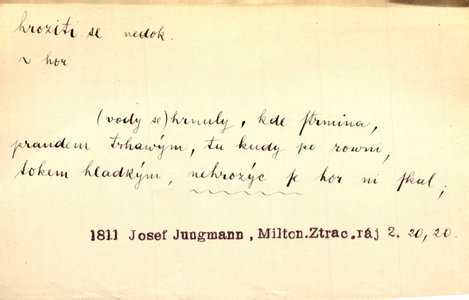 hroziti se nedok.
z hor
(vody se) hrnuly, kde ſtrmina,
praudem trhawým, tu kudy po rowni,
tokem hladkým, nehrozýc ſe hor ni ſkal;
1811 Josef Jungmann, Milton.Ztrac.ráj 2. 20, 20.